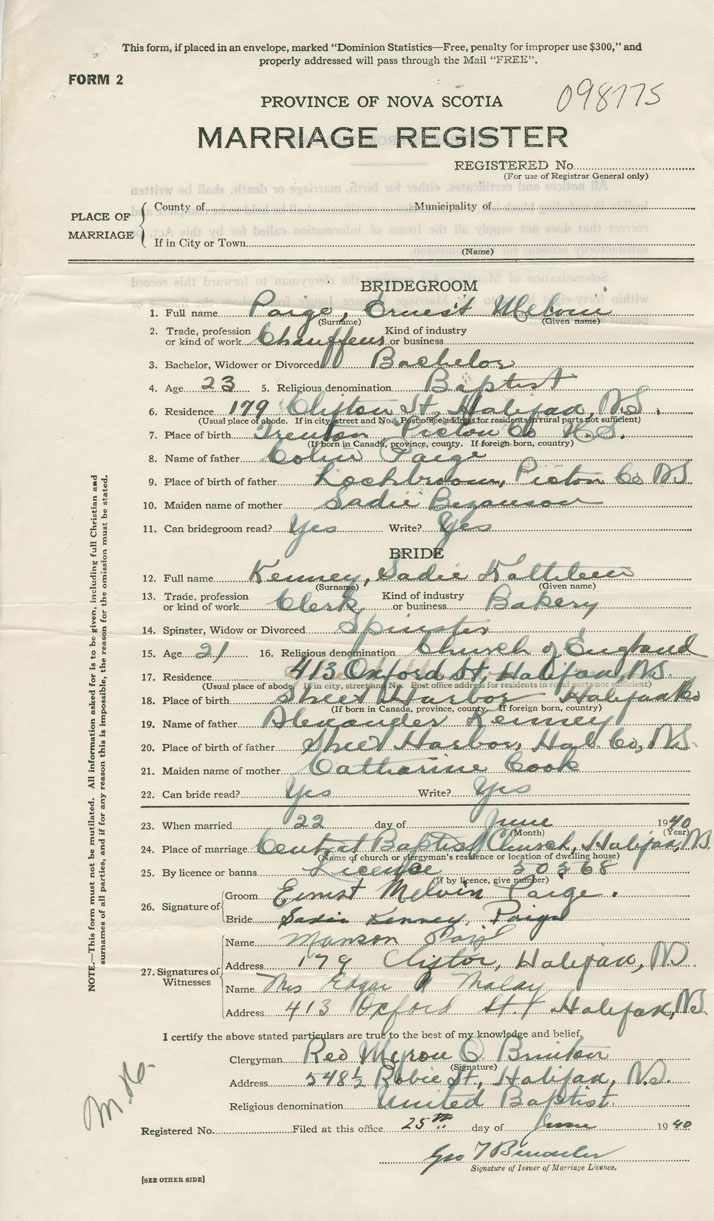 This form, if placed in an envelope, marked "Dominion Statistics—Free, penalty for improper use $300," and
properly addressed will pass through the Mail "FREE".
FORM 2
PROVINCE OF NOVA SCOTIA
098775
MARRIAGE REGISTER
REGISTERED No.
(For use of Registrar General only)
PLACE OF MARRIAGE
County of Municipality of
If in City or Town
(Name)
BRIDEGROOM
1. Full name Paige, Ernest Melvin
(Surname) (Given name)
2. Trade, profession or kind of work Chauffeur Kind of industry or business
3. Bachelor, Widower or Divorced Bachelor
4. Age 23 5. Religious denomination Baptist
6. Residence 179 Clifton St, Halifax, N.S.
(Usual place of abode. If in city street and No. Post office address for residents in rural parts not sufficient)
7. Place of birth Trenton Pictou Co N.S.
(If born in Canada, province, county. If foreign born, country)
8. Name of father Colin Paige
9. Place of birth of father Lochbroom, Pictou Co NS
10. Maiden name of mother Sadie Bezanson
11. Can bridegroom read? Yes Write? Yes
BRIDE
12. Full name Kenney, Sadie Kathleen
(Surname) (Given name)
13. Trade, profession or kind of work Clerk Kind of industry or business Bakery
14. Spinster, Widow or Divorced Spinster
15. Age 21 16. Religious denomination Church of England
17. Residence 413 Oxford St, Halifax, N.S.
(Usual place of abode. If in city, street and No. Post office address for residents in rural parts not sufficient)
18. Place of birth Sheet Harbor Halifax Co
(If born in Canada, province, county. If foreign born, country)
19. Name of father Alexander Kenney
20. Place of birth of father Sheet Harbor, Hal. Co, N.S.
21. Maiden name of mother Catharine Cook
22. Can bride read? Yes Write? Yes
23. When married 22 day of June 1940
(Month) (Year)
24. Place of marriage Central Baptist Church, Halifax, N.S.
(Name of church or clergyman's residence or location of dwelling house)
25. By licence or banns Licence 50568
(If by licence, give number)
26. Signature of
Groom Ernest Melvin Paige.
Bride Sadie Kenney, Paige
27. Signatures of Witnesses
Name Manson
Address 179 Clifton, Halifax, N.S.
Name Mrs Edgar
Address 413 Oxford St. Halifax, N.S.
I certify the above stated particulars are true to the best of my knowledge and belief,
Clergyman Rev Myron O Brinton
(Signature)
Address 548½ Robie St, Halifax, N.S.
Religious denomination United Baptist
Registered No. Filed at this office 25th day of June 1940
Geo
Signature of Issuer of Marriage Licence.
[SEE OTHER SIDE]
NOTE.—This form must not be mutilated. All information asked for is to be given, including full Christian and
surnames of all parties, and if for any reason this is impossible, the reason for the omission must be stated.